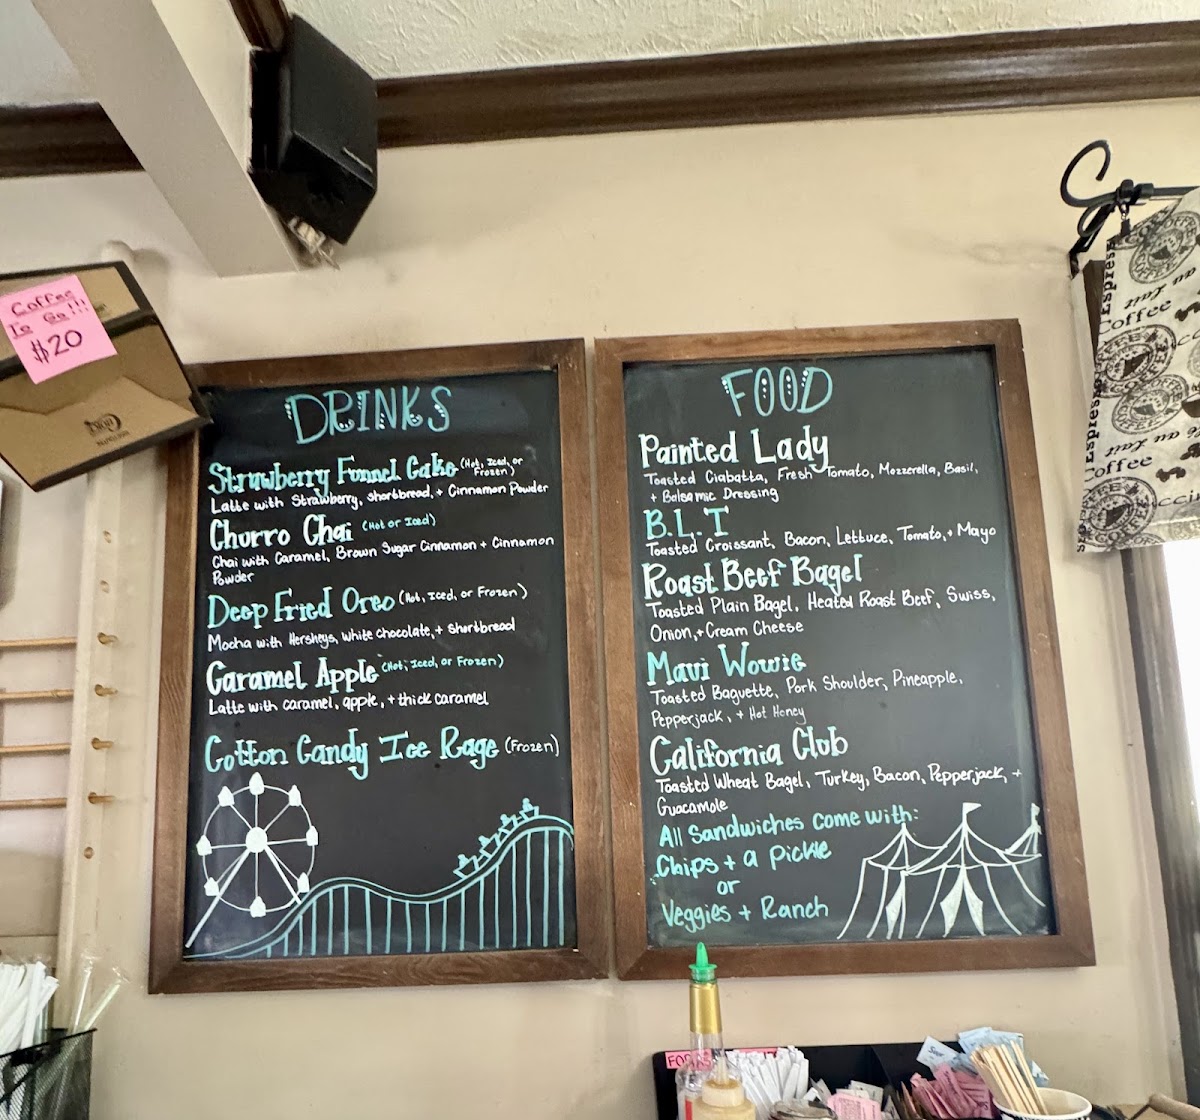 Coffee
To Go!!!
$20
DRINKS
Strawberry Funnel Cake (Hot, Iced, or Frozen)
Latte with Strawberry, shortbread, + Cinnamon Powder
Churro Chai (Hot or Iced)
Chai with Caramel, Brown Sugar Cinnamon + Cinnamon
Powder
Deep Fried Oreo (Hot, Iced, or Frozen)
Mocha with Hersheys, white chocolate, + shortbread
Caramel Apple (Hot, Iced, or Frozen)
Latte with caramel, apple, + thick caramel
Cotton Candy Ice Rage (Frozen)
FOOD
Painted Lady
Toasted Ciabatta, Fresh Tomato, Mozzerella, Basil,
+ Balsamic Dressing
B.L.T
Toasted Croissant, Bacon, Lettuce, Tomato, + Mayo
Roast Beef Bagel
Toasted Plain Bagel, Heated Roast Beef, Swiss,
Onion, + Cream Cheese
Maui Wowie
Toasted Baguette, Pork Shoulder, Pineapple,
Pepperjack, + Hot Honey
California Club
Toasted Wheat Bagel, Turkey, Bacon, Pepperjack, +
Guacamole
All Sandwiches come with:
Chips + a Pickle
or
Veggies + Ranch
Espresso
au lait
Coffee
Espresso
au lait
Coffee